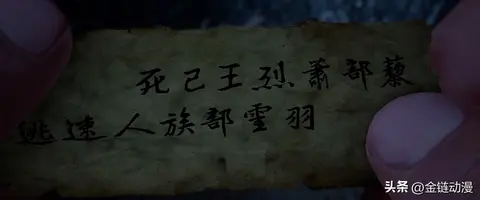 藜部蕭烈王已死
羽霊部族人速逃
头条 @金链动漫